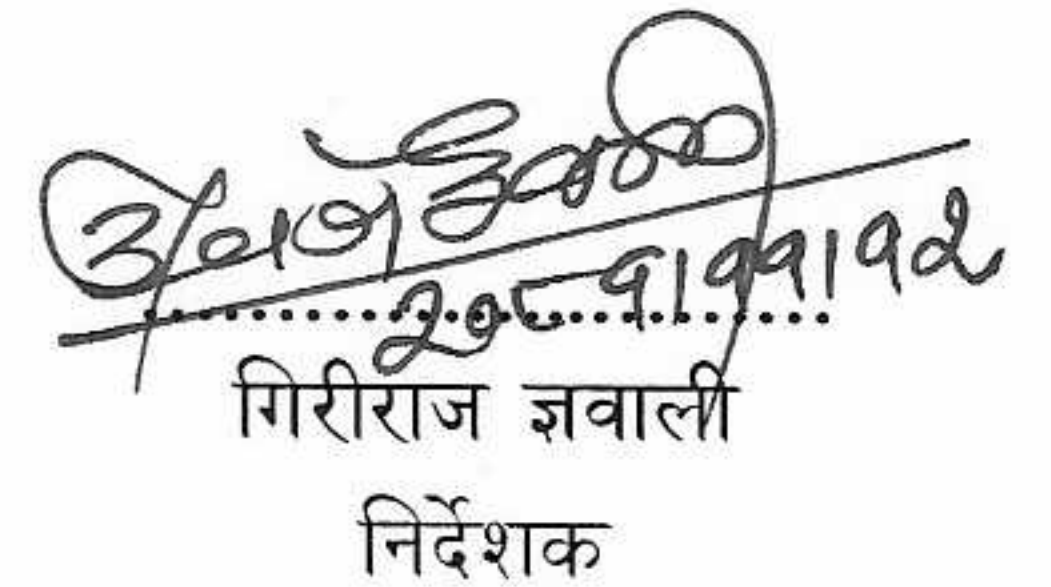 २०८१।११।१२
गिरीराज ज्ञवाली
निर्देशक